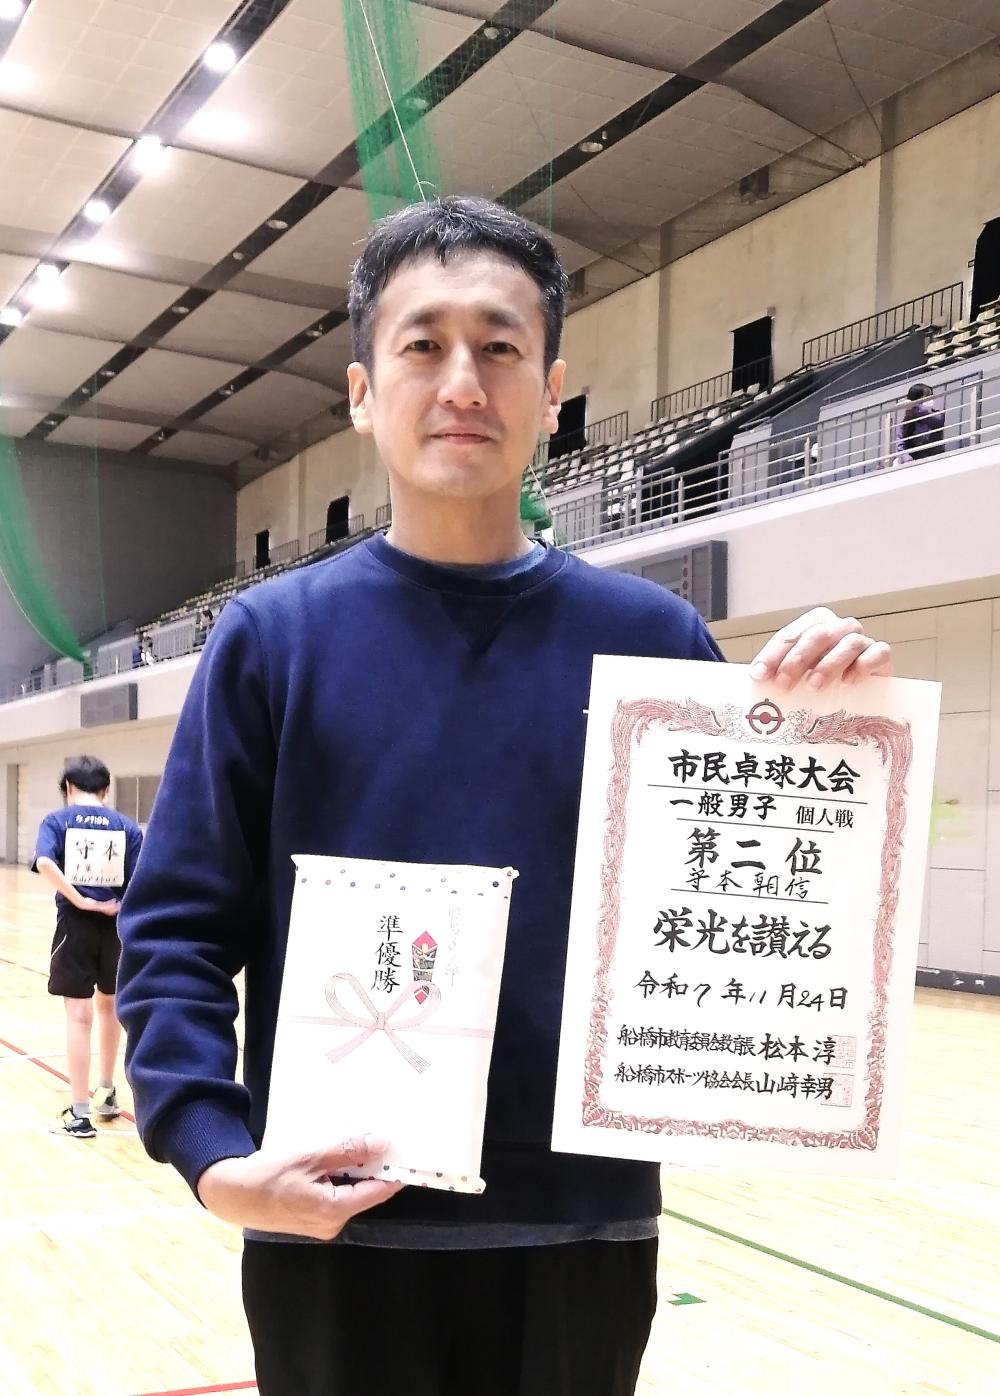 市民卓球大会
一般男子 個人戦
第二位
守本朝信
栄光を讃える
令和7年11月24日
船橋市教育委員会教育長 松本淳
船橋市スポーツ協会会長 山﨑幸男
準優勝
守本
千葉
流山アストロズ